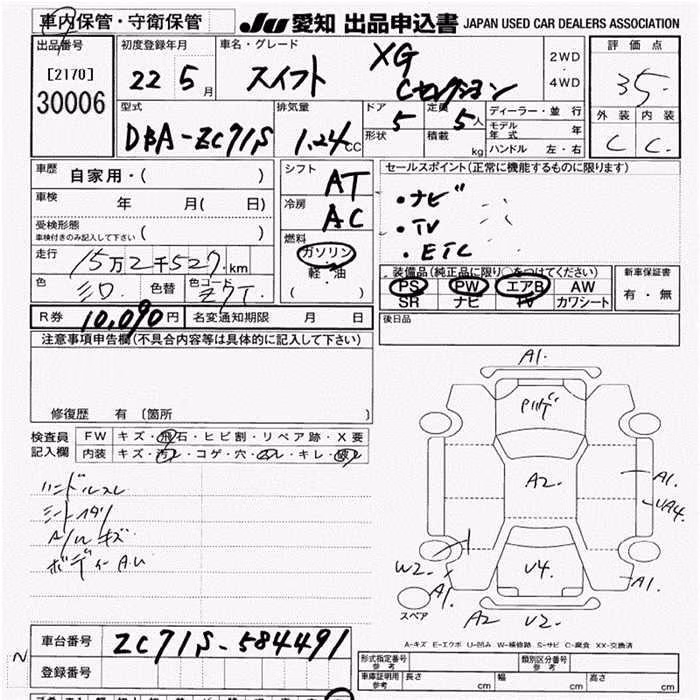 車内保管・守衛保管
JU 愛知 出品申込書 JAPAN USED CAR DEALERS ASSOCIATION
出品番号
[2170]
30006
初度登録年月
22 5 月
車名・グレード
スイフト XG
Cセレクション
2WD
・
4WD
評価点
3.5
外装 内装
C C
型式
DBA-ZC71S
排気量
1.24 CC
ドア
5
形状
定員
5 人
積載 kg
ディーラー・並行
モデル年式 年
ハンドル 左・右
車歴 自家用・( )
車検 年 月( 日)
受検形態
車検付きのみ記入して下さい ( )
走行
15万2千527 km
色 シロ 色替 色コード Z7T
シフト AT
冷房 AC
燃料
ガソリン
軽・油
( )
セールスポイント(正常に機能するものに限ります)
・ナビ
・TV
・ETC
装備品(純正品に限り○をつけてください)
PS PW エアB AW
SR ナビ TV カワシート
新車保証書
有・無
R券 10,090 円 名変通知期限 月 日
後日品
注意事項申告欄(不具合内容等は具体的に記入して下さい)
修復歴 有 〔箇所 〕
検査員
記入欄
FW キズ・飛石・ヒビ割・リペア跡・X要
内装 キズ・汚レ・コゲ・穴・スレ・キレ・破レ
ハンドルスレ
シートスレ
A/Wキズ
ボディーA.U
A1.
A2.
A1.
UA4.
W2.
V4.
A1.
A1.
スペア
A2 U2.
A-キズ E-エクボ U-凹み W-補修跡 S-サビ C-腐食 XX-交換済
車台番号 ZC71S-584491
登録番号
N
形式指定番号
参考
類別区分番号
参考
車庫証明用
参考
長さ cm 幅 cm 高さ cm